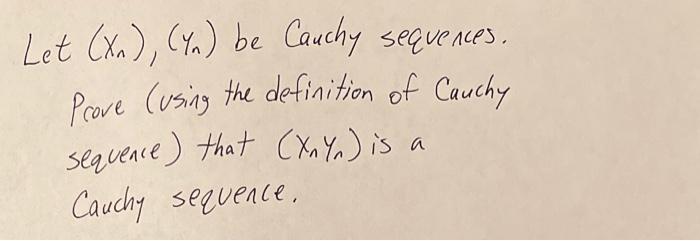 Let (Xn), (Yn) be Cauchy sequences.
Prove (using the definition of Cauchy
sequence) that (XnYn) is a
Cauchy sequence.